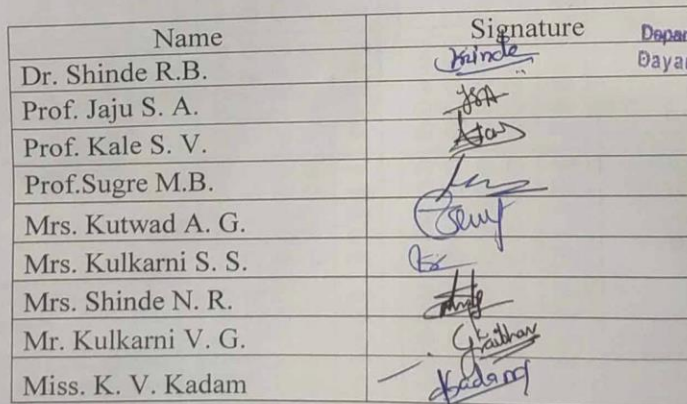 Name Signature Depar
Dr. Shinde R.B. Shinde Dayar
Prof. Jaju S. A. JSA
Prof. Kale S. V.
Prof.Sugre M.B.
Mrs. Kutwad A. G.
Mrs. Kulkarni S. S.
Mrs. Shinde N. R.
Mr. Kulkarni V. G.
Miss. K. V. Kadam Kadam